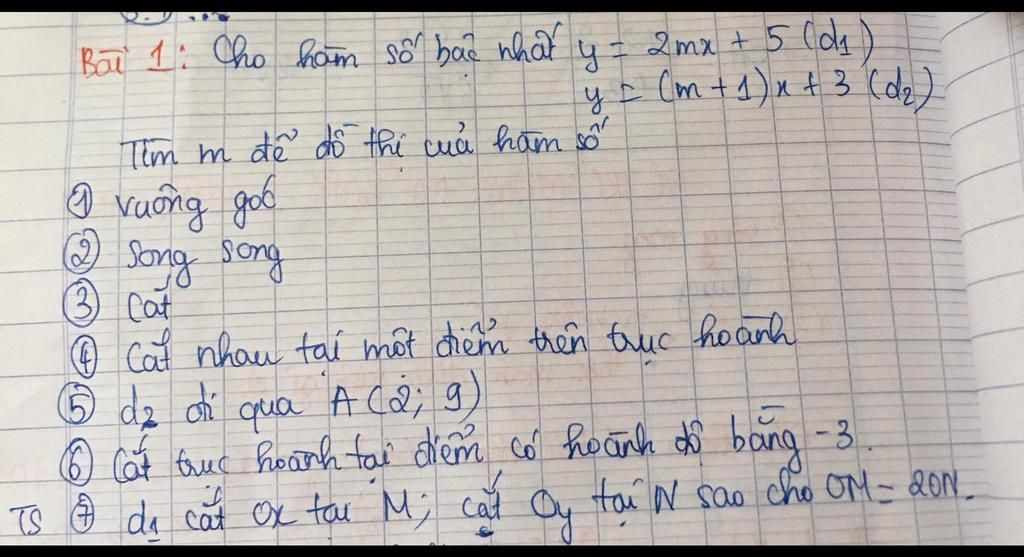 Bài 1: Cho hàm số bậc nhất y = 2mx + 5 (d₁)
y = (m + 1)x + 3 (d₂)
Tìm m để đồ thị của hàm số
① vuông góc
② song song
③ cắt
④ cắt nhau tại một điểm trên trục hoành
⑤ d₂ đi qua A (2; 9)
⑥ Cắt trục hoành tại điểm có hoành độ bằng -3.
TS ⑦ d₁ cắt Ox tại M; cắt Oy tại N sao cho OM = 2ON.